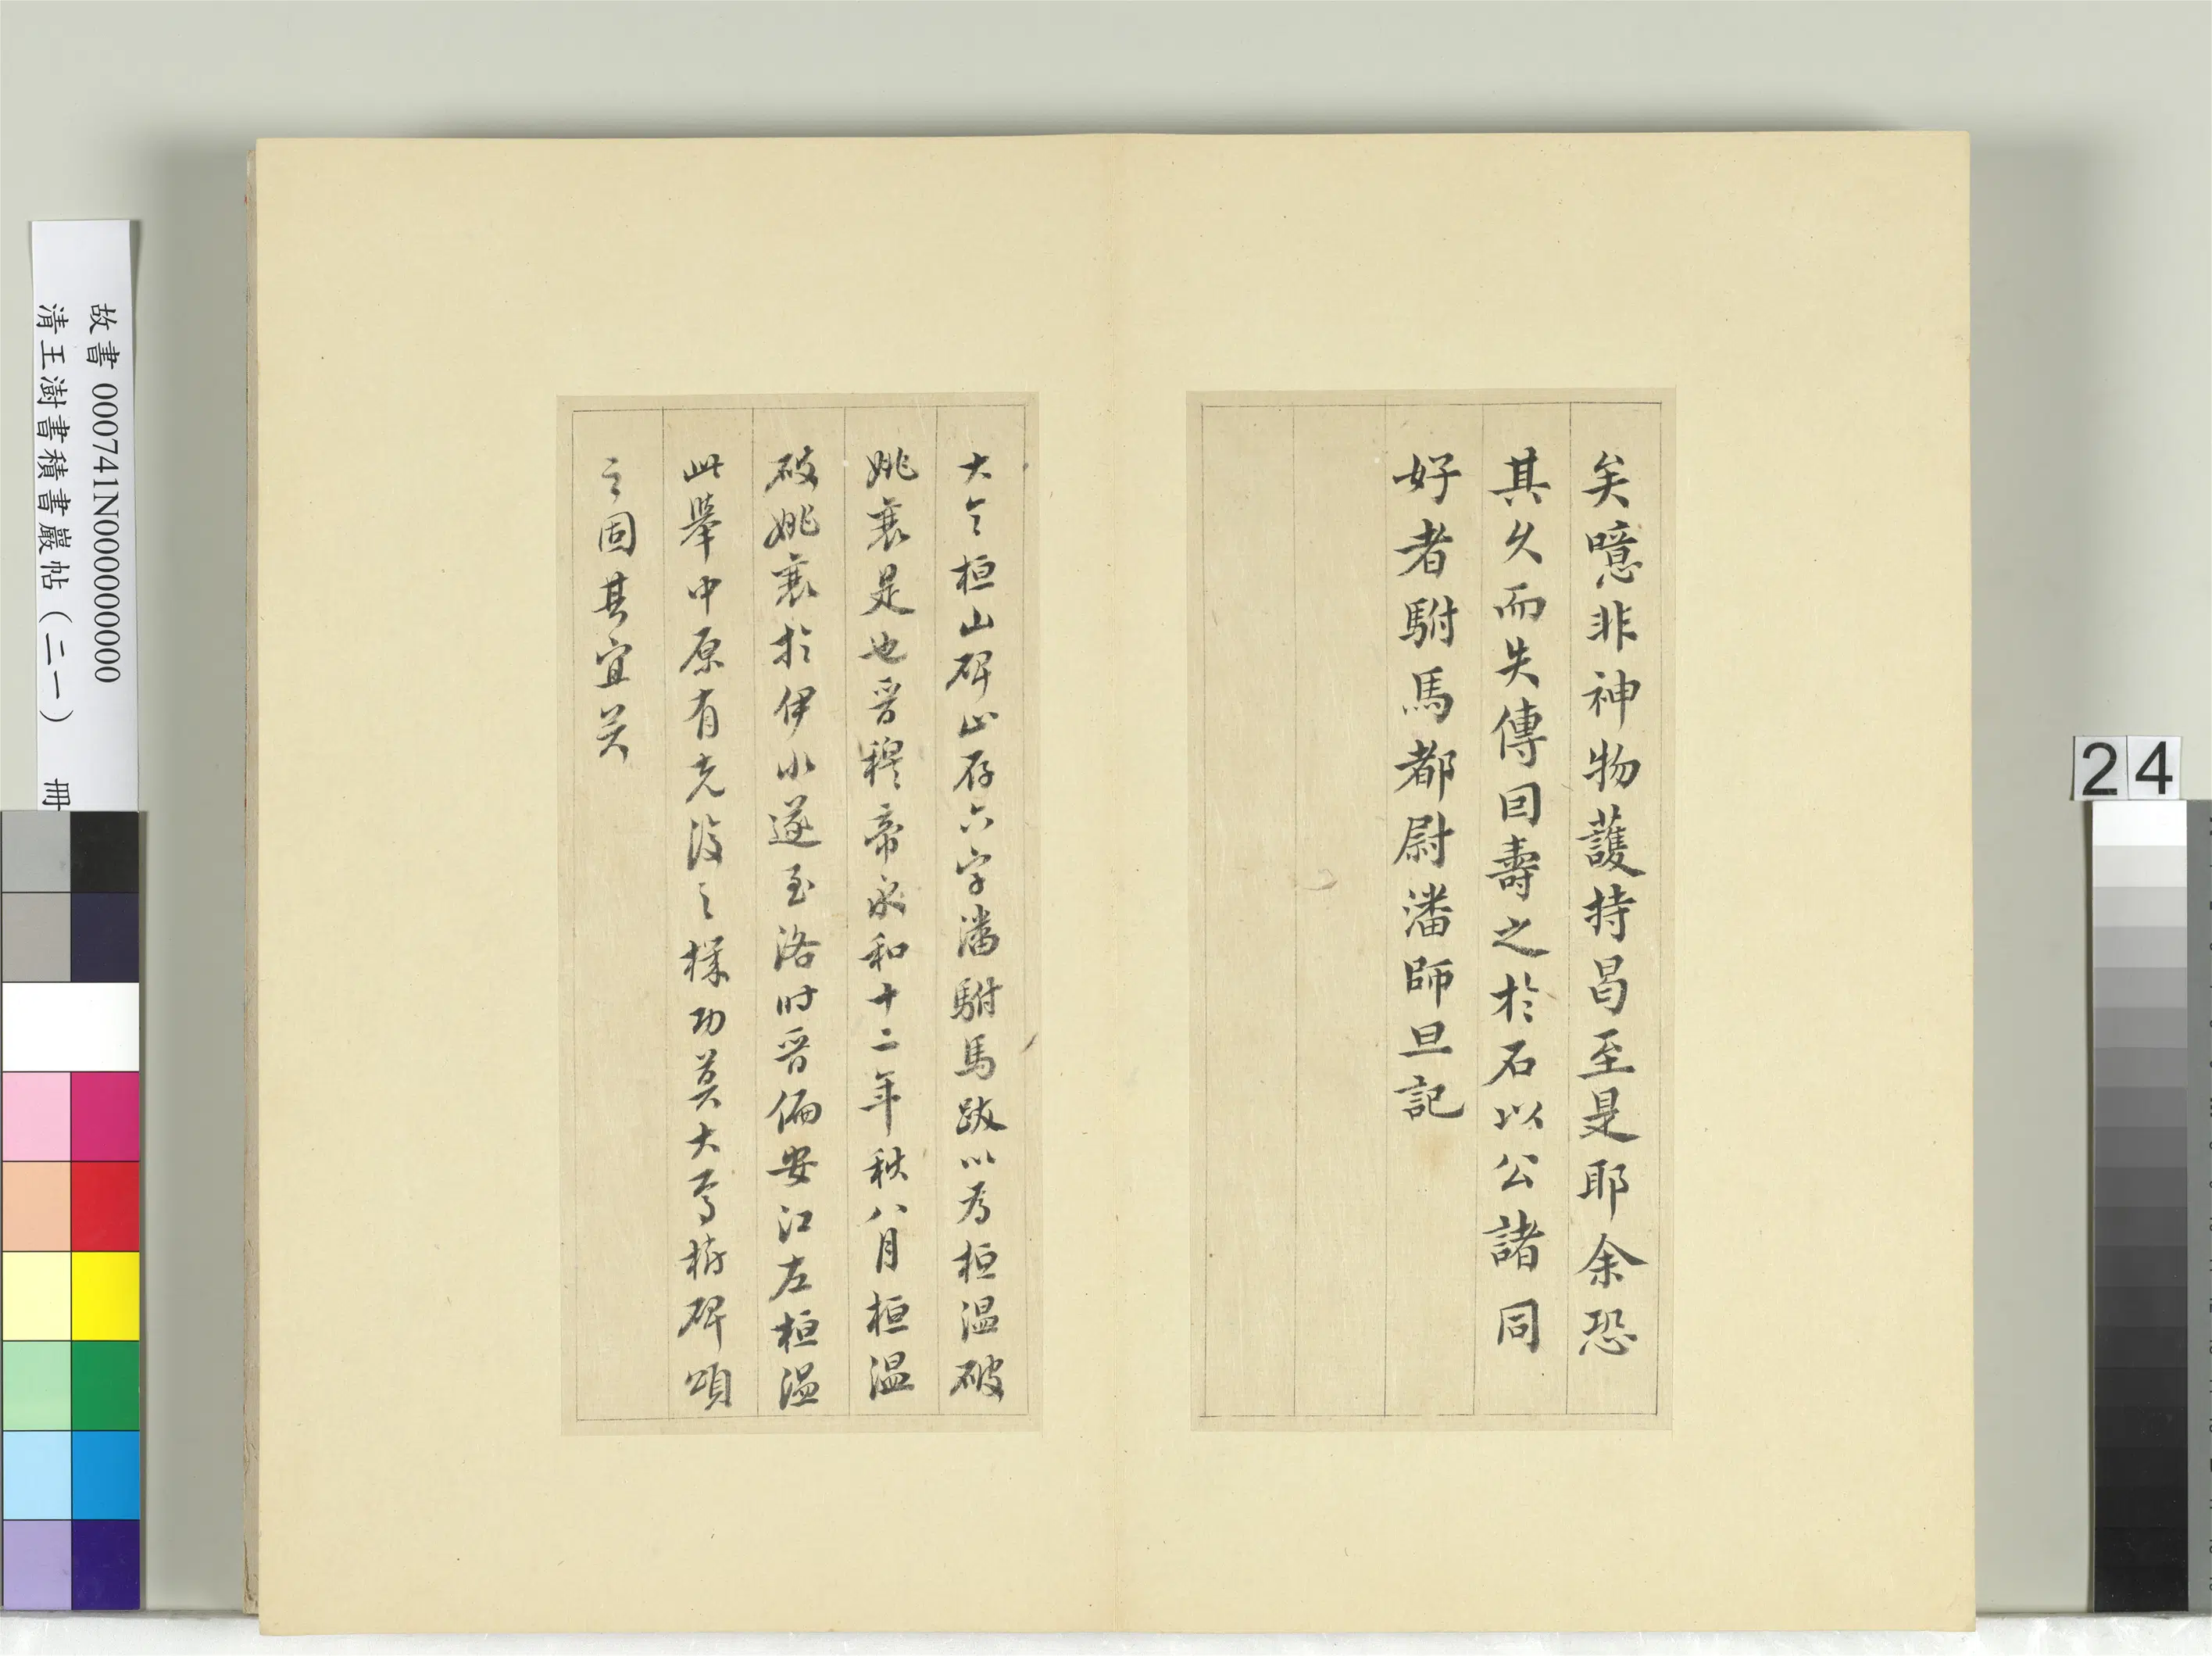 矣噫非神物護持曷至是耶余恐
其久而失傳因壽之於石以公諸同
好者駙馬都尉潘師旦記
大令桓山碑止存六字潘駙馬跋以為桓溫破
姚襄是也晉穆帝永和十二年秋八月桓溫
破姚襄於伊水遂至洛时晉偏安江左桓溫
此舉中原有克復之機功莫大焉樹碑頌
之固其宜矣
故書 000741N000000000
清王澍書積書巖帖（二一） 冊
24